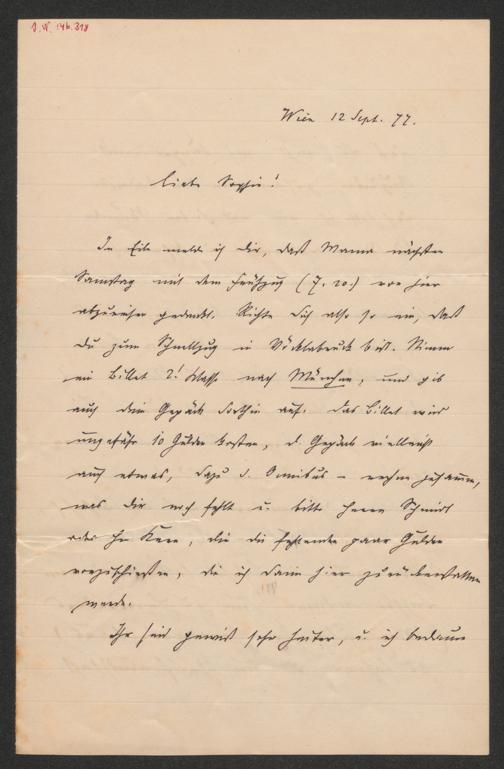 J.N. 146.318
Wien 12 Sept. 77.
Liebe Sophie!
In Eile melde ich Dir, daß Mama nächsten
Samstag mit dem Frühzug (7.20.) von hier
abzureisen gedenkt. Richte Dich also so ein, daß
Du zum Schnellzug in Vöcklabruck bist. Nimm
ein Billet 2! Klasse nach München, und gib
auch dein Gepäck dorthin auf. Das Billet wird
ungefähr 10 Gulden kosten, d. Gepäck vielleicht
auch etwas, dazu d. Omnibus – rechne zusammen,
was Dir noch fehlt u. bitte Herrn Schmidt
oder Hr Kern, Dir die fehlenden paar Gulden
vorzuschießen, die ich dann hier zurückerstatten
werde.
Ihr seid gewiß sehr heiter, u. ich bedaure